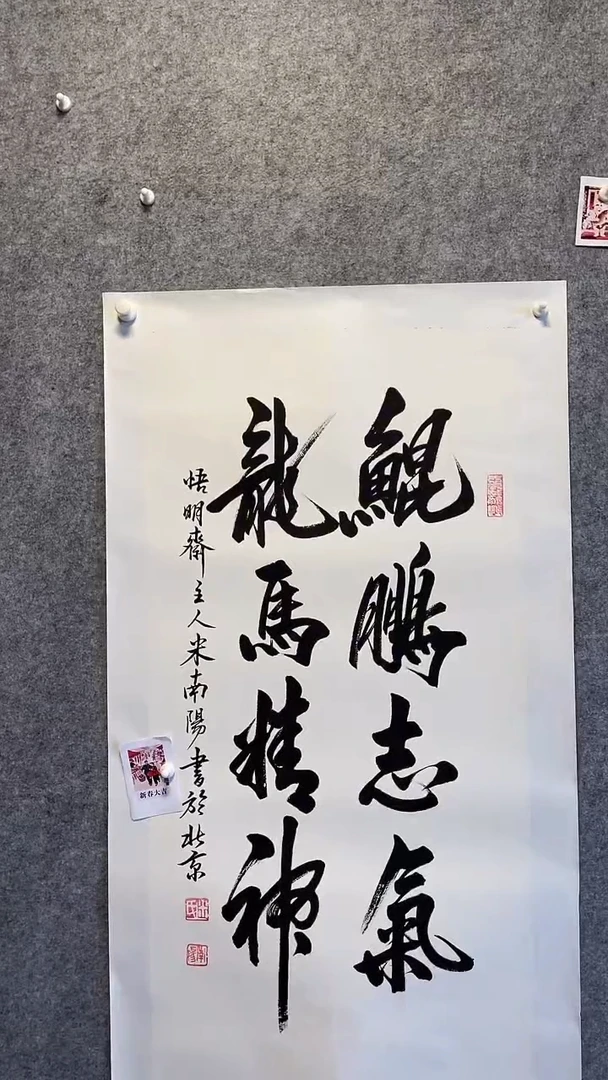 鯤鵬志氣
龍馬精神
悟明齋主人米南陽書於北京
新春大吉